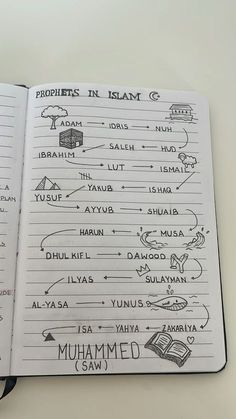 PROPHETS IN ISLAM
ADAM IDRIS NUH
IBRAHIM SALEH HUD
LUT ISMAIL
YUSUF YAKUB ISHAQ
AYYUB SHUAIB
HARUN MUSA
DHULKIFL DAWOOD
ILYAS SULAYMAN
AL-YASA YUNUS
ISA YAHYA ZAKARIYA
MUHAMMED
(SAW)